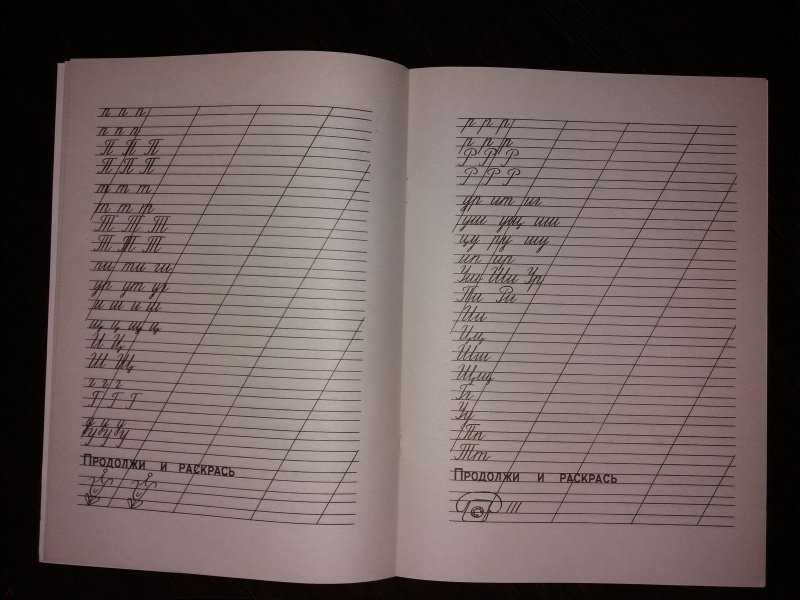 п п п
п п п
П П П
П П П
т т т
т т т
Т Т Т
Т Т Т
пи ти ги
ур ут ур
и ш и ш
щ ц щ ц
И Ц
Ш Щ
г г г
Г Г Г
У У У
ПРОДОЛЖИ И РАСКРАСЬ
р р р
р р р
Р Р Р
Р Р Р
ур ит иг
уш ущ иш
цу ру шу
ип ир
Уш Иш Ур
Гви Ри
Ии
Цц
Шш
Щщ
Гг
Уу
Пп
Тт
ПРОДОЛЖИ И РАСКРАСЬ